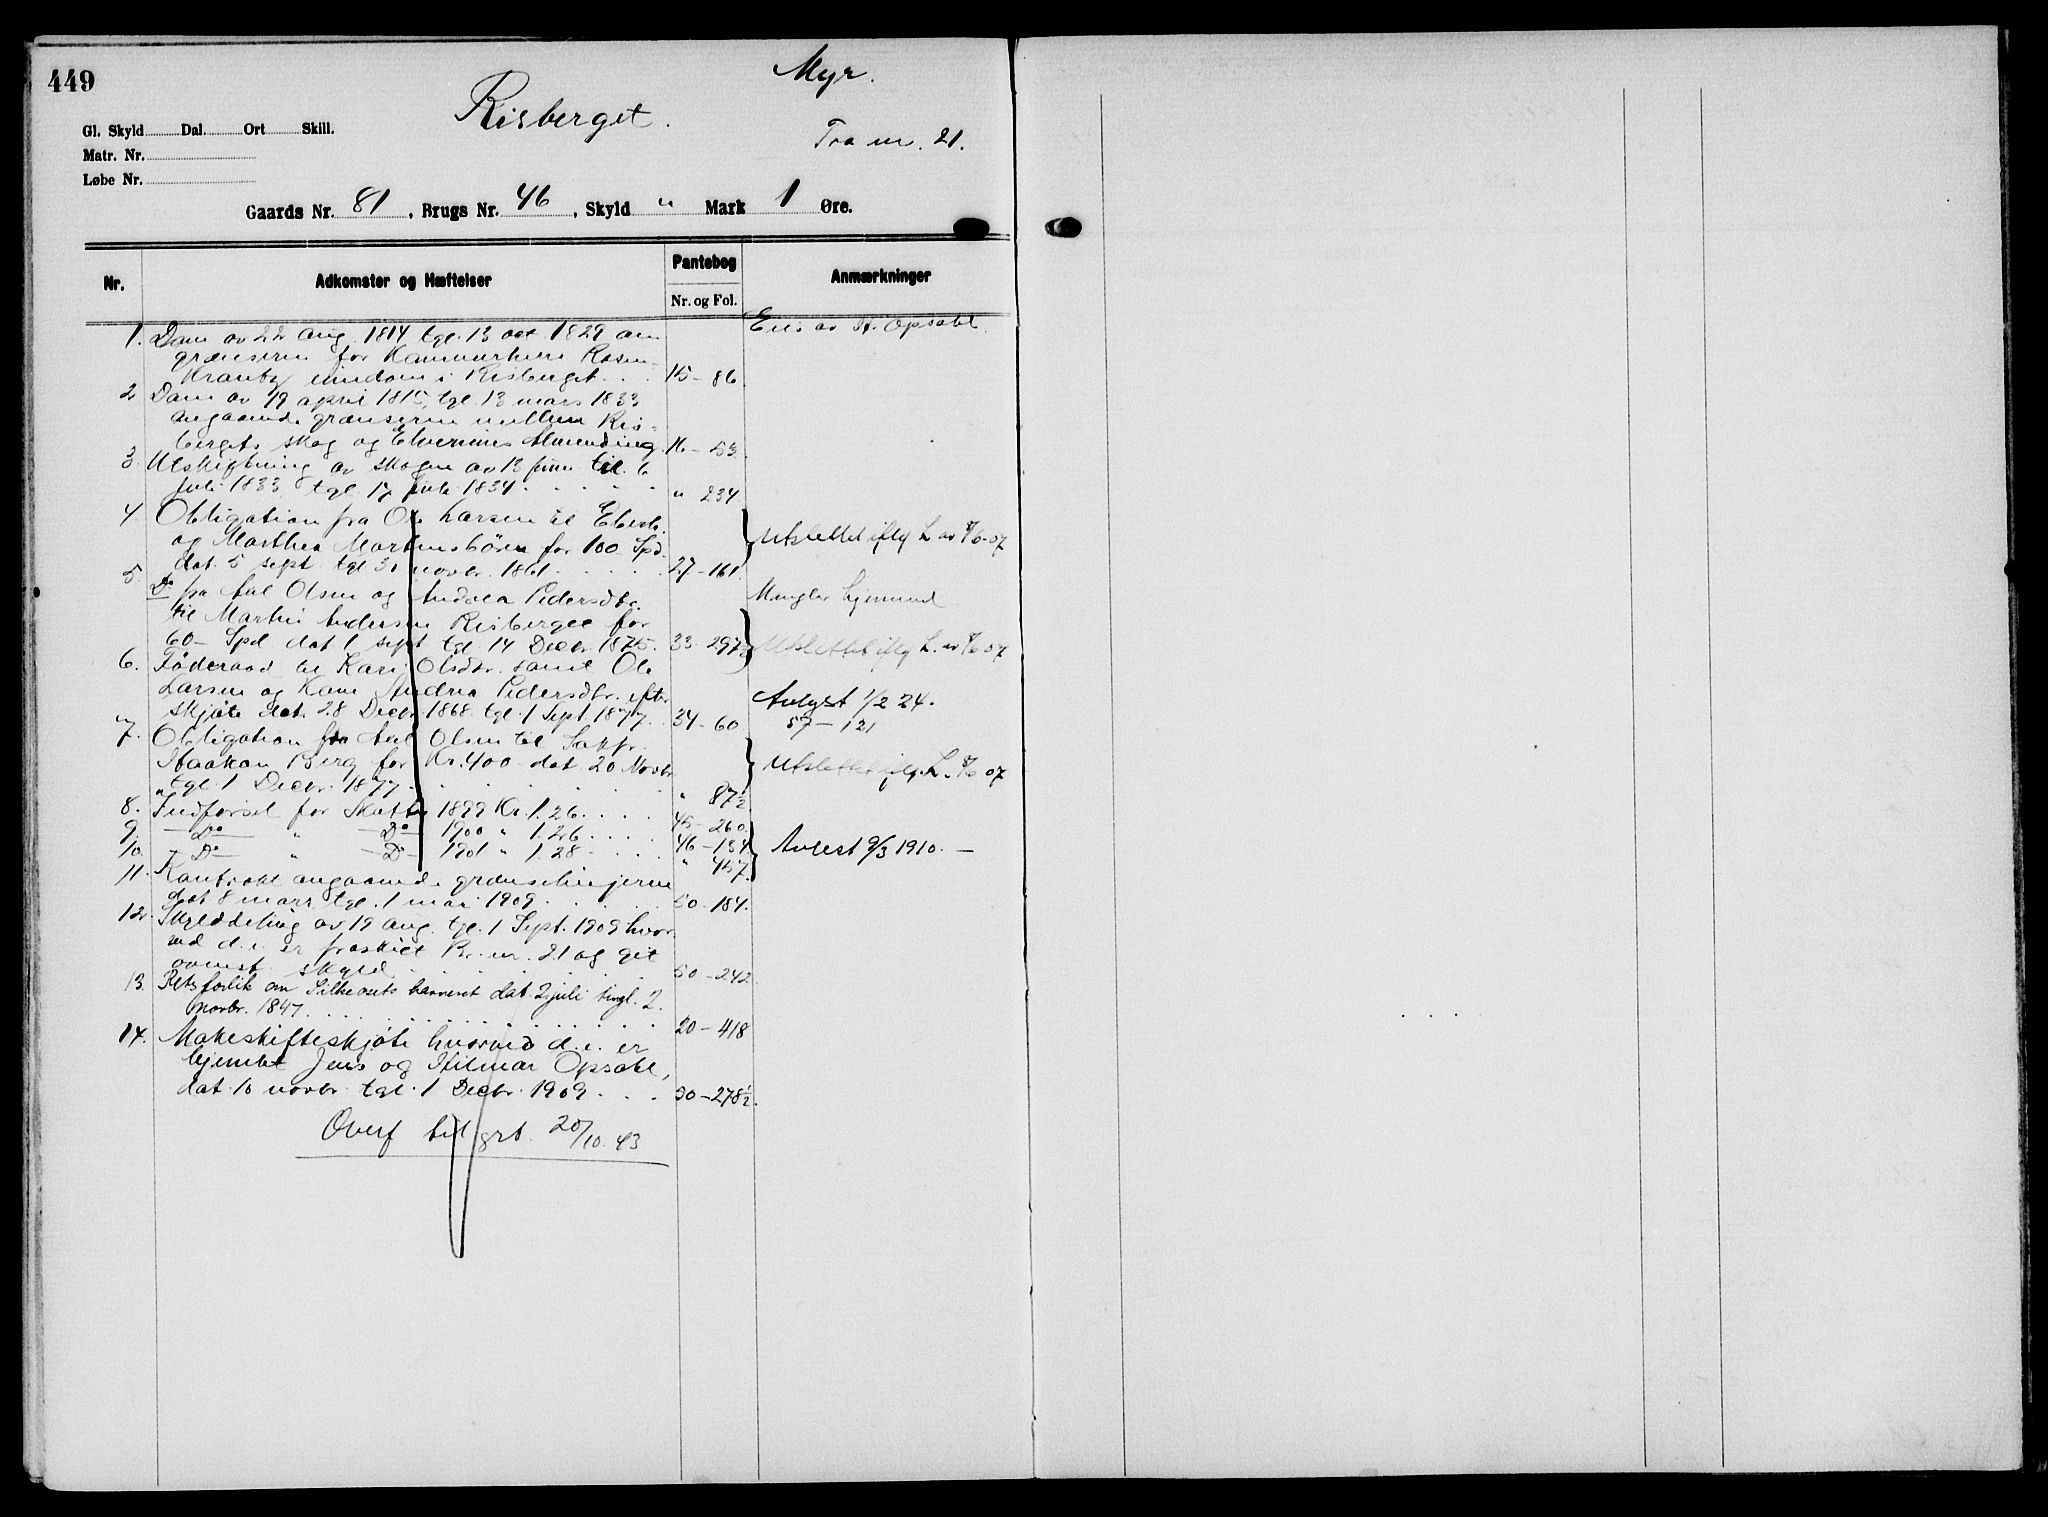 449
Myr.
Risberget.
Fra nr. 21.
Gl. Skyld Dal. Ort Skill.
Matr. Nr.
Løbe Nr.
Gaards Nr. 81, Brugs Nr. 46, Skyld " Mark 1 Øre.
Nr. Adkomster og Hæftelser Pantebog Nr. og Fol. Anmærkninger
1. Dom av 22 aug. 1814 tgl. 13 oct. 1829 om Eies av H. Opsahl.
grænserne for Kammerherre Rosen-
krantz eiendom i Risberget. . . 15 - 86.
2 Dom av 19 april 1815, tgl. 13 mars 1833
angaaende grænserne mellem Ris-
bergets skog og Elverums Almending. 16 - 53.
3. Utskiftning av skogen av 13 juni til 6
juli 1833, tgl. 17 juli 1834. . . . . " 234.
4. Obligation fra Ole Larsen til
og Marthea Martinsbörn for 100 Spd. Utslettet iflg L av 8/6-07
dat. 5 sept tgl 30 novbr. 1861. . . . . 27 - 161.
5. Do fra Olsen og Andrea Pedersdtr. Mangler hjemmel
til Martin Andersen Risberget for
60 - Spd dat 1 sept tgl. 14 Decbr. 1875. 33 - 297½ Utslettet iflg L. av 8/6 07
6. Föderaad til Kari Olsdtr. samt Ole
Larsen og Kone Andrea Pedersdtr. efter Avlyst 1/2 24.
skjøte dat. 28 Decbr. 1868. tgl. 1 Sept. 1877. 34 - 60. 57 - 121
7. Obligation fra Olsen til Sakfr.
Haakon Berg for Kr. 400 dat 20 Novbr. Utslettet iflg. L. 8/6 07
tgl. 1 Decbr. 1877. . . . . " 87½
8. Indførsel for Skatter 1899 Kr. 1.26. . . . . 45 - 260.
9. — Do — " — Do — 1900 " 1.26. . . . . 46 - 134 Avlest 9/3 1910. —
10. — Do — " — Do — 1901 " 1.28 . . . . " 457.
11. Kontrakt angaaende grænselinjerne
dat 8 mars tgl. 1 mai 1909. . . . . 50 - 184.
12. Skylddeling av 19 aug. tgl. 1 Sept. 1909 hvor-
ved d. e. er fraskilt Br. nr. 21 og git
ovenst. skyld. . . . . 50 - 242.
13. Retsforlik om havneret dat. 2 juli tingl. 2.
novbr. 1847. . . . . 20 - 418
14. Makeskifteskjøte hvorved d. e. er
hjemlet Jens og Hilmar Opsahl,
dat. 10 novbr. tgl. 1 Decbr. 1909. . . . 50 - 278½.
Overf til grb. 20/10.43